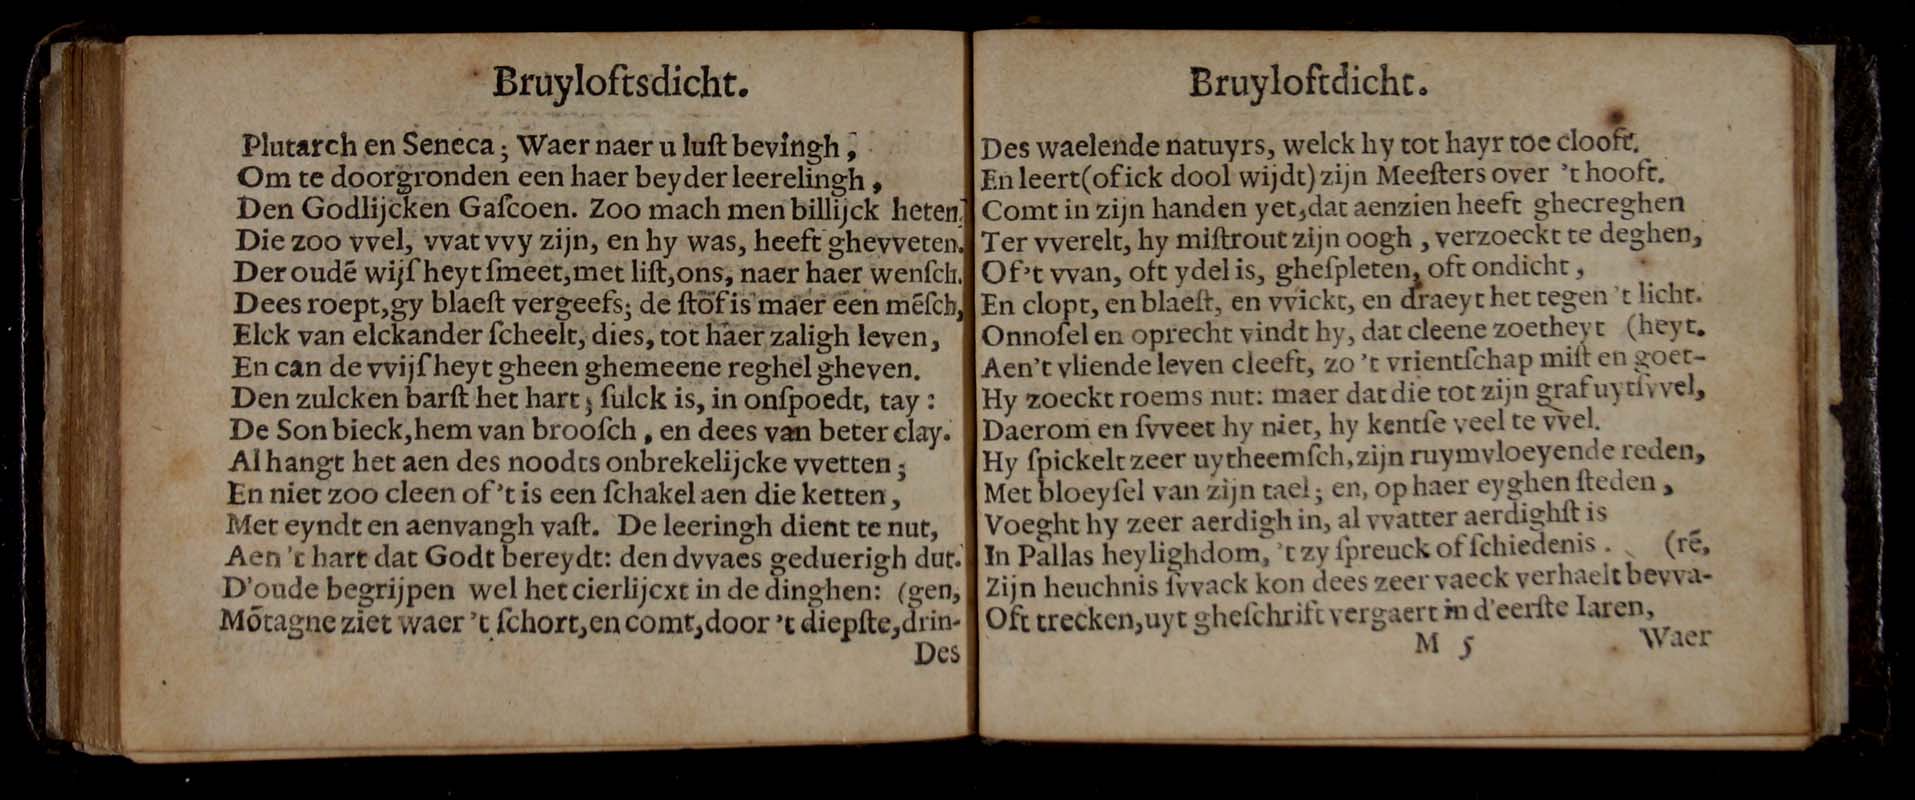 Bruyloftsdicht.
Plutarch en Seneca; Waer naer u luſt bevingh,
Om te doorgronden een haer beyder leerelingh,
Den Godlijcken Gaſcoen. Zoo mach men billijck heten,
Die zoo vvel, vvat vvy zijn, en hy was, heeft ghevveten.
Der oudē wijſheyt ſmeet, met liſt, ons, naer haer wenſch.
Dees roept, gy blaeſt vergeefs; de ſtof is maer een mēſch,
Elck van elckander ſcheelt, dies, tot haer zaligh leven,
En can de vvijſheyt gheen ghemeene reghel gheven.
Den zulcken barſt het hart; ſulck is, in onſpoedt, tay:
De Son bieck, hem van brooſch, en dees van beter clay.
Al hangt het aen des noodts onbrekelijcke vvetten;
En niet zoo cleen of 't is een ſchakel aen die ketten,
Met eyndt en aenvangh vaſt. De leeringh dient te nut,
Aen 't hart dat Godt bereydt: den dvvaes geduerigh dut.
D'oude begrijpen wel het cierlijcxt in de dinghen: (gen,
Mōtagne ziet waer 't ſchort, en comt, door 't diepſte, drin-
Des
Bruyloftdicht.
Des waelende natuyrs, welck hy tot hayr toe clooft.
En leert (of ick dool wijdt) zijn Meeſters over 't hooft.
Comt in zijn handen yet, dat aenzien heeft ghecreghen
Ter vverelt, hy miſtrout zijn oogh, verzoeckt te deghen,
Of 't vvan, oft ydel is, gheſpleten, oft ondicht,
En clopt, en blaeſt, en vvickt, en draeyt het tegen 't licht.
Onnoſel en oprecht vindt hy, dat cleene zoetheyt (heyt.
Aen't vliende leven cleeft, zo 't vrientſchap miſt en goet-
Hy zoeckt roems nut: maer dat die tot zijn graf uytſvvel,
Daerom en ſvveet hy niet, hy kentſe veel te vvel.
Hy ſpickelt zeer uytheemſch, zijn ruymvloeyende reden,
Met bloeyſel van zijn tael; en, op haer eyghen ſteden,
Voeght hy zeer aerdigh in, al vvatter aerdighſt is
In Pallas heylighdom, 't zy ſpreuck of ſchiedenis. (rē,
Zijn heuchnis ſvvack kon dees zeer vaeck verhaelt bevva-
Oft trecken, uyt gheſchrift vergaert in d'eerſte Iaren,
M 5 Waer